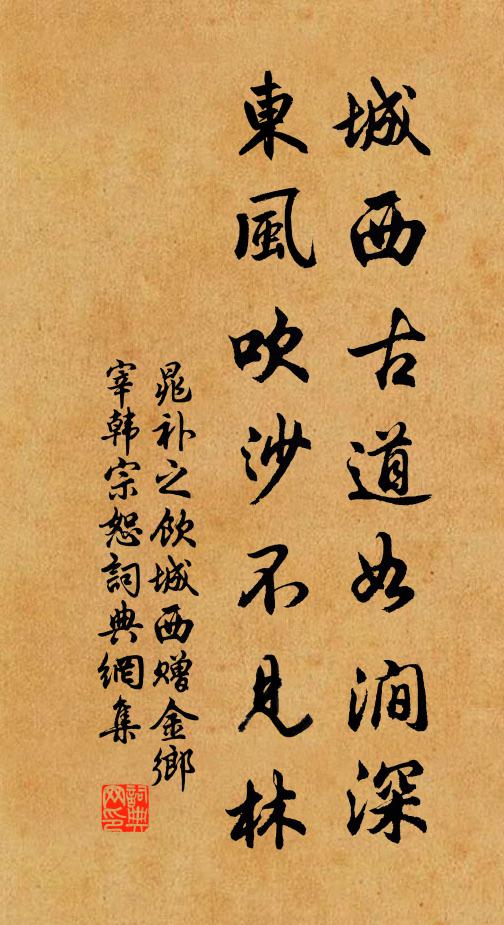 城西古道如澗深
東風吹沙不見林
晁补之飲城西贈金鄉
宰韩宗恕詞典網集
詞典
网印